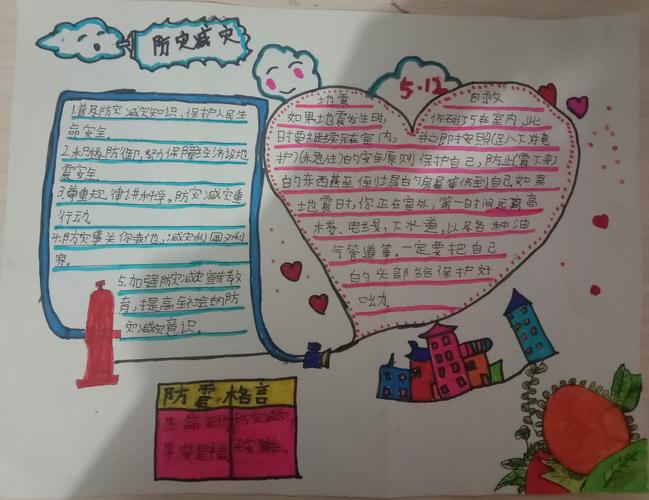 防灾减灾
5.12
1.普及防灾减灾知识,保护人民生
命安全。
2.积极防御,努力保障经济设地
震安全。
3.尊重规律讲科学。防灾减灾重
行动
4.防灾事关你我他,减灾利国又利
家。
5.加强防灾减灾宣传教
育,提高全社会的防
灾减灾意识。
地震 自救
如果地震发生时,你碰巧在室内,此
时要继续呆在室内,并立即按照
护)(永急住)的安全原则保护自己,防止(震下来)
的东西甚至倒 的房屋 伤到自己如果
地震时,你正在室外,第一时间远离高
木楼、电线、下水道,以及各种油
气管道等,一定要把自己
的头部给保护好
防震格言
生命
防灾减灾
平安是福